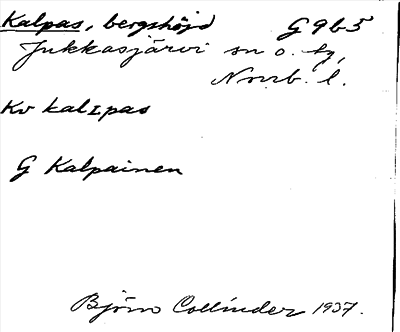 Kalpas, bergshöjd G9b5
Jukkasjärvi sn o. tg,
Norrb. l.
Kv kalɪpas
G Kalpainen
Björn Collinder 1937.